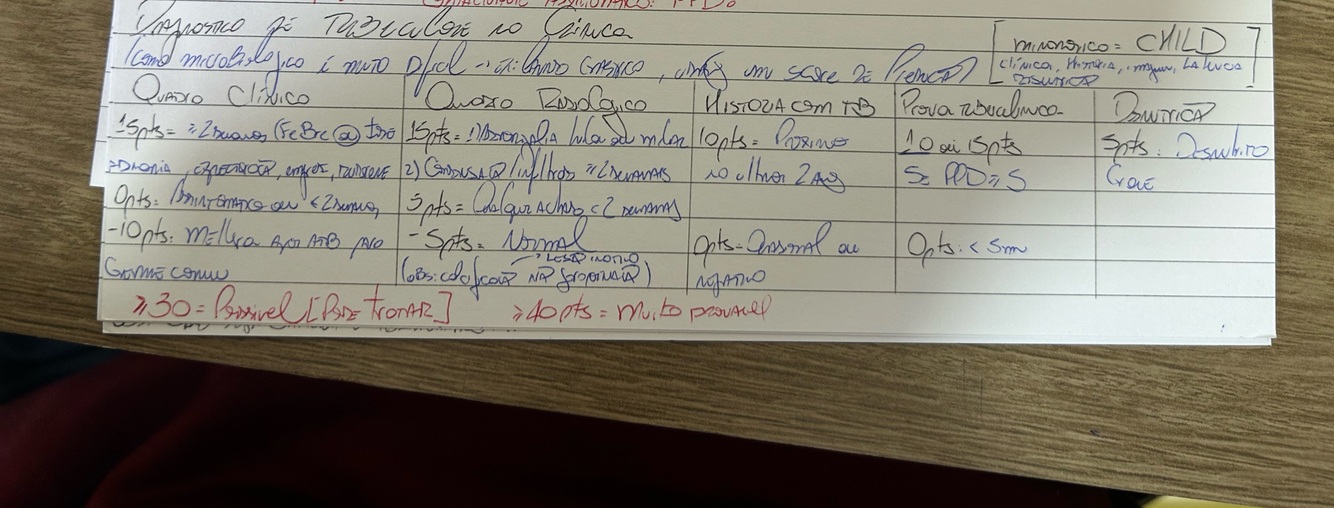 Diagnóstico de Tuberculose na Criança
[mnemônico = CHILD
Clínica, História, imagem, Latência
Desnutrição]
(como microbiológico é muito difícil → lavado gástrico, um score de Predição)
Quadro Clínico
15pts = ≥2 semanas (Febre ou tosse
adinamia, expectoração, emagre, sudorese
0pts = Assintomático ou <2 semanas
-10pts: Melhora após ATB para
Germe comum
Quadro Radiológico
15pts = 1) Adenomegalia hilar ou miliar
2) Condensação/infiltrado ≥2 semanas
5pts = Qualquer achado <2 semanas
-5pts = Normal
(obs: calcificação não
História com TB
10pts = Próximo
no últimos 2 anos
0pts = Ocasional ou
negativo
Prova tuberculínica
10 ou 15pts
Se PPD ≥5
0pts: <5mm
Desnutrição
5pts: Desnutrido
Grave
≥30 = Possível [Pode tratar]
≥40pts = Muito provável